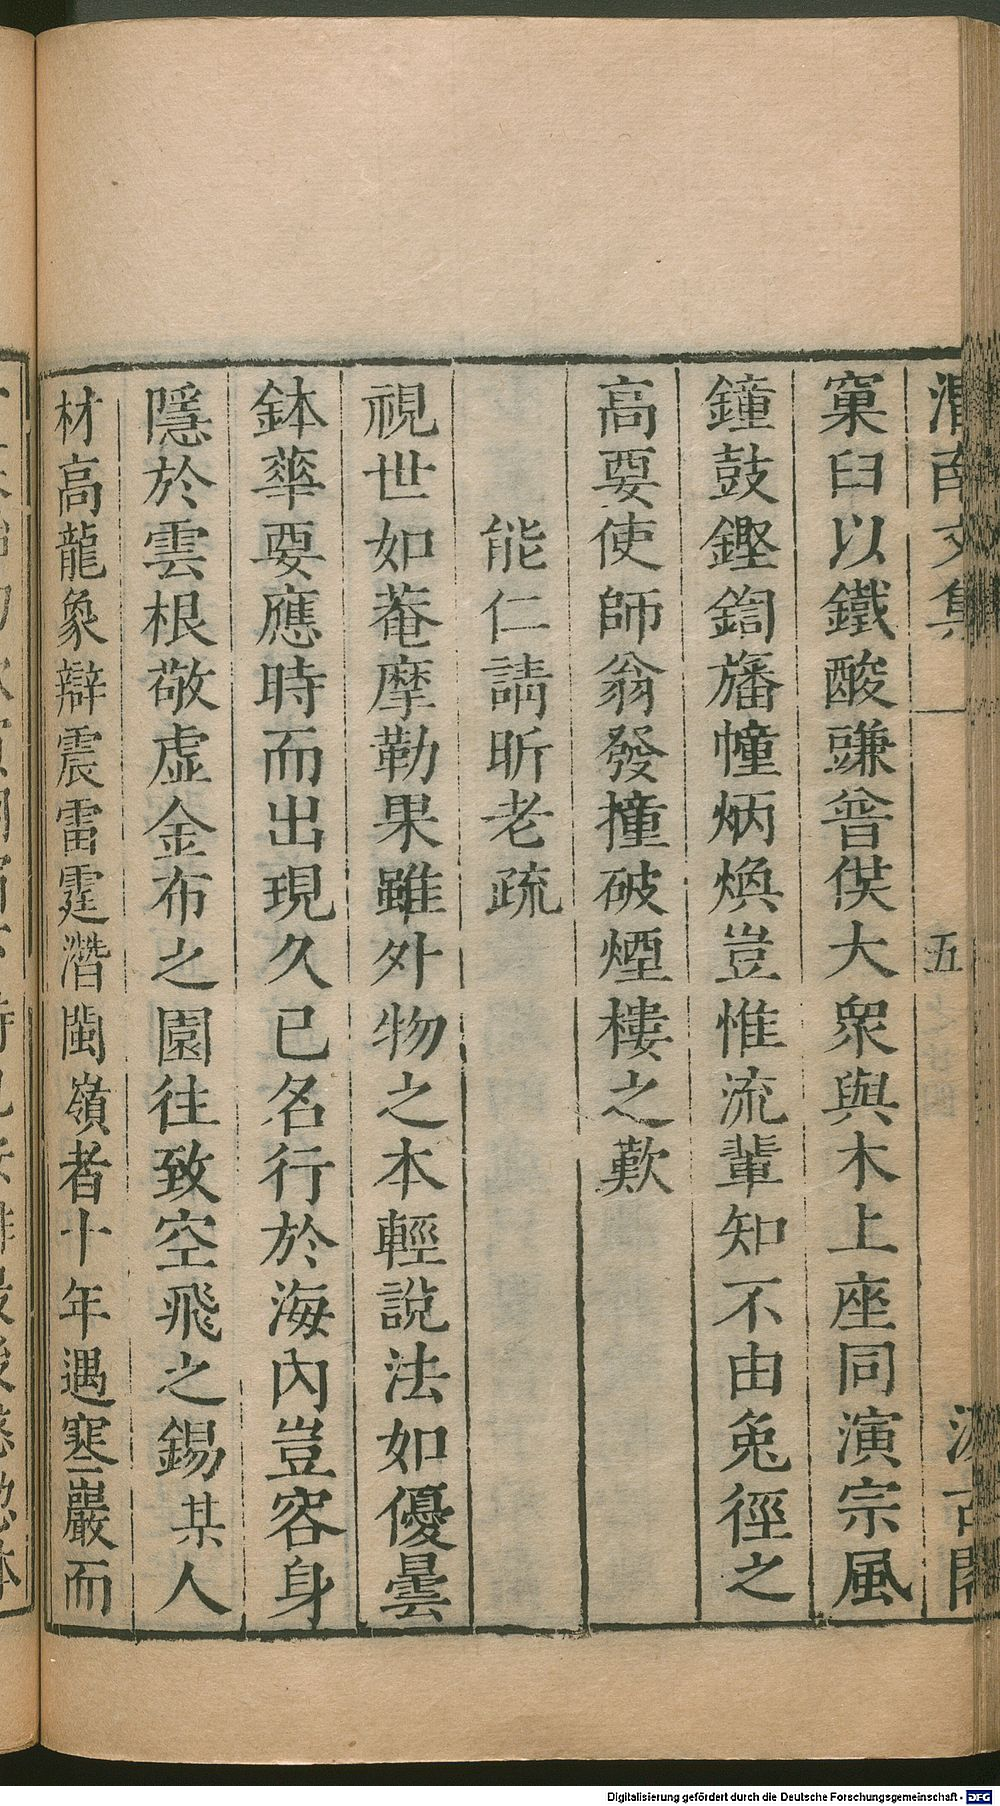 渭南文集 五 汲古閣
窠臼以鐵酸豏普供大衆與木上座同演宗風
鐘鼓鏗鍧旛幢炳煥豈惟流輩知不由兔徑之
高要使師翁發撞破煙樓之歎
能仁請昕老疏
視世如菴摩勒果雖外物之本輕說法如優曇
鉢華要應時而出現久已名行於海內豈容身
隱於雲根敬虛金布之園往致空飛之錫某人
材高龍象辯震雷霆潛閩嶺者十年遇寒巖而
Digitalisierung gefördert durch die Deutsche Forschungsgemeinschaft - DFG